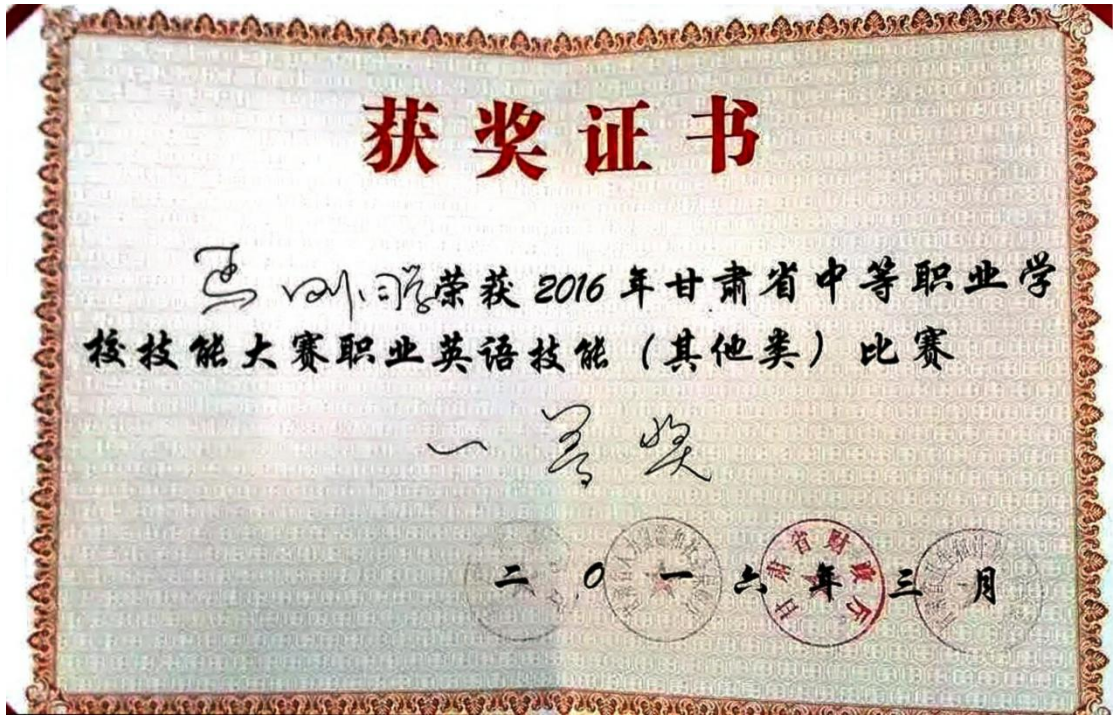 获奖证书
同学荣获2016年甘肃省中等职业学
校技能大赛职业英语技能（其他类）比赛
一等奖
二〇一六年三月
甘肃省财政厅